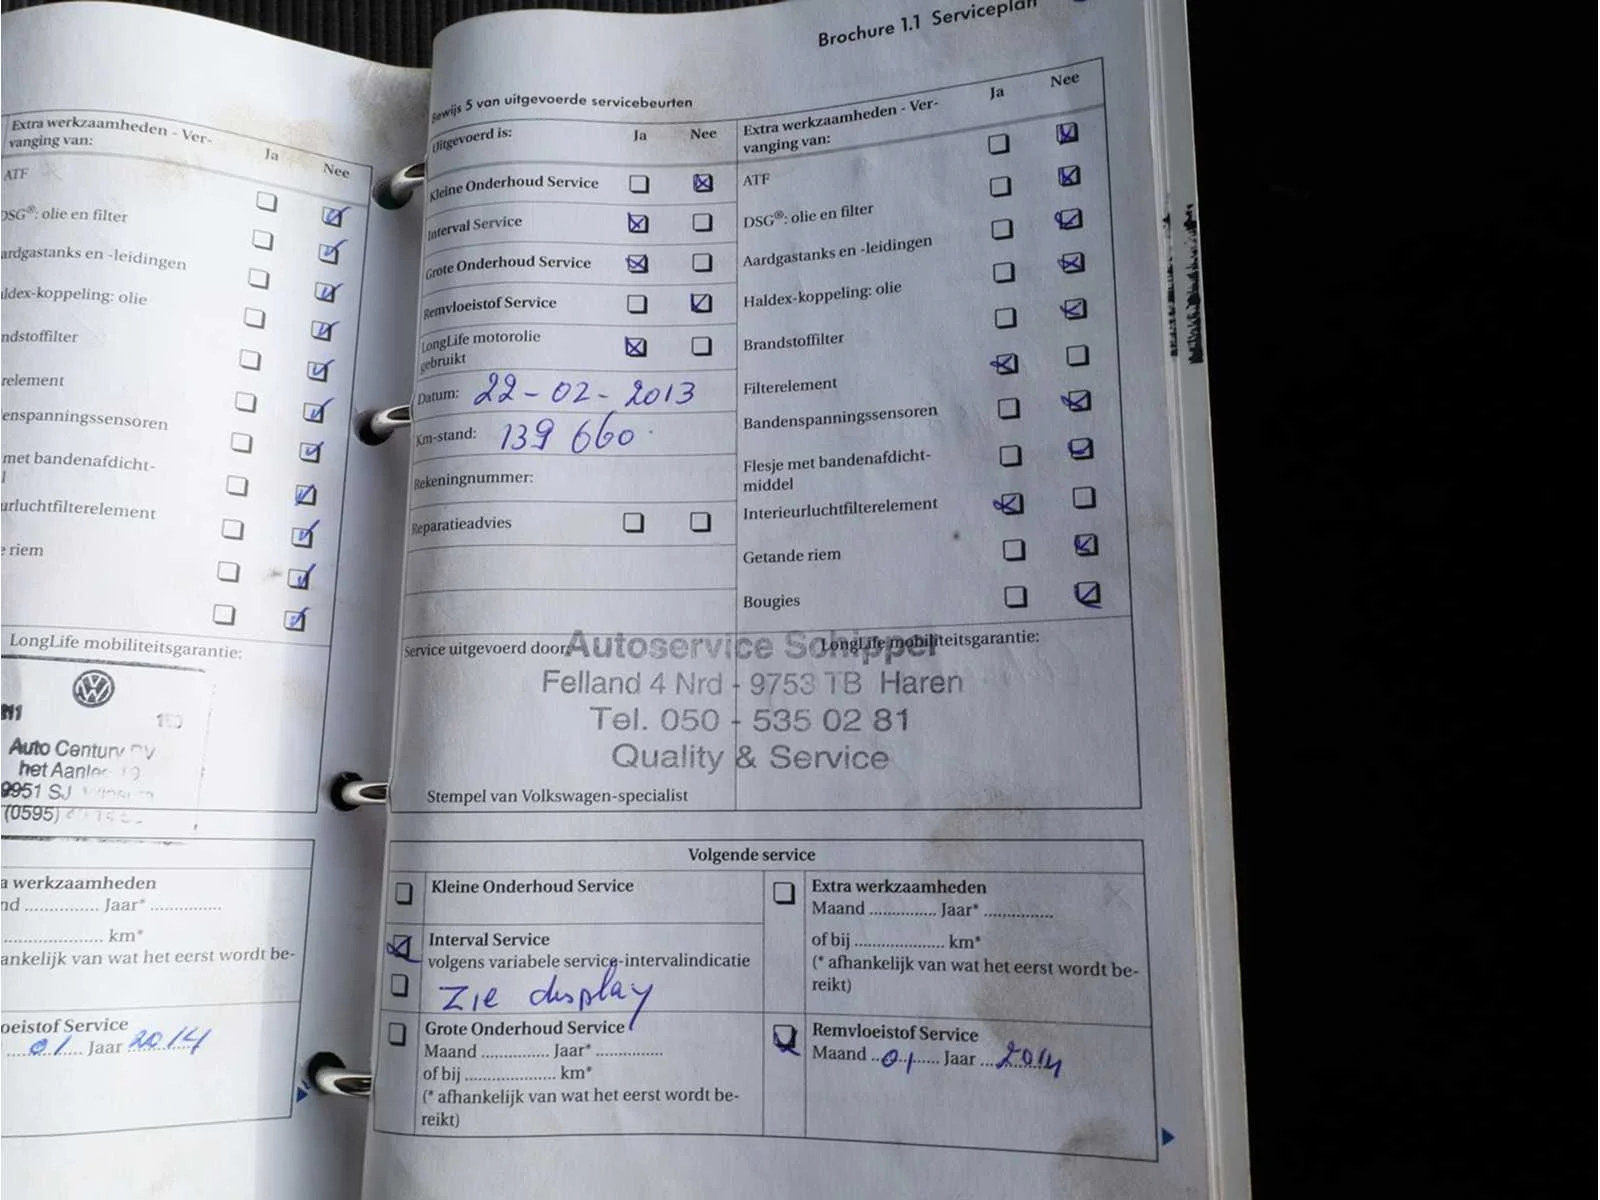 Brochure 1.1 Serviceplan
Extra werkzaamheden - Ver-
vanging van:
Ja
Nee
ATF
DSG®: olie en filter
ardgastanks en -leidingen
ldex-koppeling: olie
ndstoffilter
relement
enspanningssensoren
met bandenafdicht-
l
urluchtfilterelement
e riem
LongLife mobiliteitsgarantie:
Auto Century
het Aanleg
9951 SJ
(0595)
a werkzaamheden
nd ............... Jaar* ...............
.................... km*
ankelijk van wat het eerst wordt be-
oeistof Service
01 Jaar 2014
Bewijs 5 van uitgevoerde servicebeurten
Uitgevoerd is:
Ja
Nee
Kleine Onderhoud Service
Interval Service
Grote Onderhoud Service
Remvloeistof Service
LongLife motorolie
gebruikt
Datum: 22-02-2013
Km-stand: 139 660
Rekeningnummer:
Reparatieadvies
Extra werkzaamheden - Ver-
vanging van:
Ja
Nee
ATF
DSG®: olie en filter
Aardgastanks en -leidingen
Haldex-koppeling: olie
Brandstoffilter
Filterelement
Bandenspanningssensoren
Flesje met bandenafdicht-
middel
Interieurluchtfilterelement
Getande riem
Bougies
Service uitgevoerd door:
LongLife mobiliteitsgarantie:
Autoservice Schippel
Felland 4 Nrd - 9753 TB Haren
Tel. 050 - 535 02 81
Quality & Service
Stempel van Volkswagen-specialist
Volgende service
Kleine Onderhoud Service
Interval Service
volgens variabele service-intervalindicatie
Zie display
Grote Onderhoud Service
Maand ............... Jaar* ...............
of bij .................... km*
(* afhankelijk van wat het eerst wordt be-
reikt)
Extra werkzaamheden
Maand ............... Jaar* ...............
of bij .................... km*
(* afhankelijk van wat het eerst wordt be-
reikt)
Remvloeistof Service
Maand 01 Jaar 2014